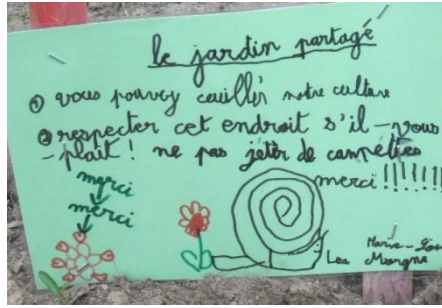 le jardin partagé
① vous pouvez cuillir notre culture
② respecter cet endroit s'il-vous
-plait ! ne pas jèter de
merci
merci
merci !!!!!!!
Lea